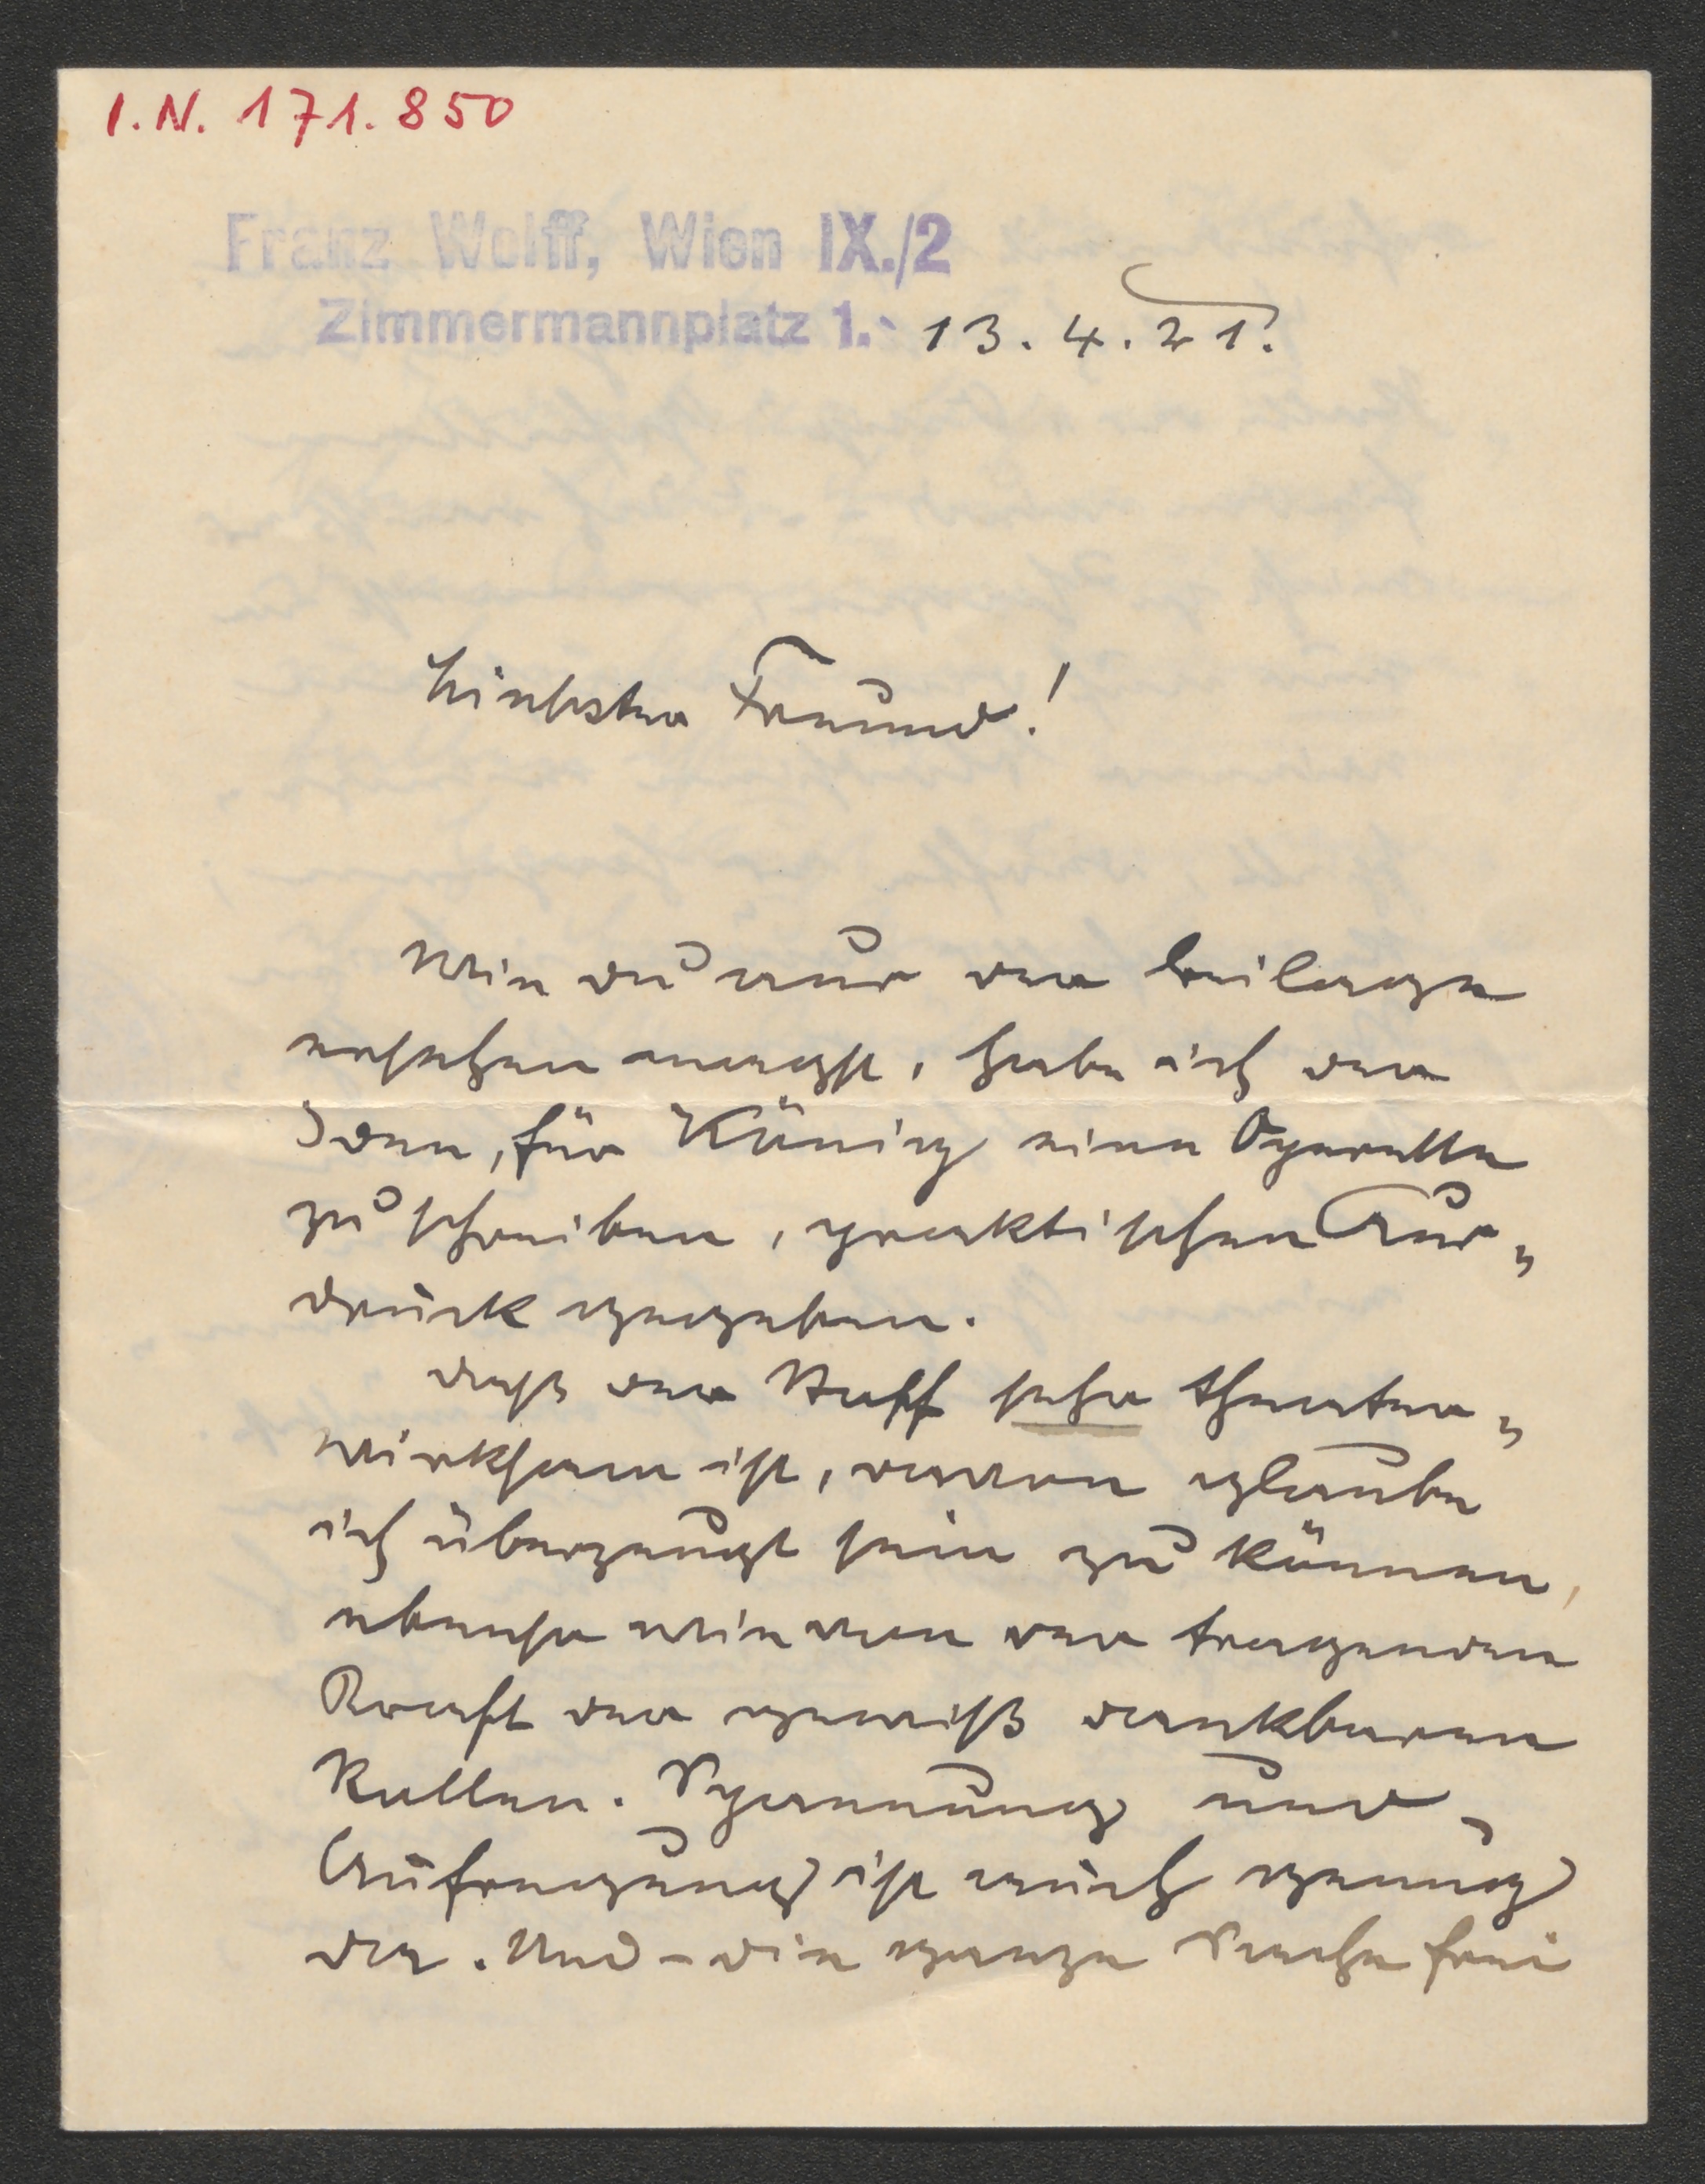 I.N. 171.850
Franz Wolff, Wien IX./2
Zimmermannplatz 1.
13.4.21.
Liebster Freund!
Wie du aus der Beilage
ersehen magst, habe ich der
Idee, für König eine Operette
zu schreiben, praktischen Aus„
druck gegeben.
Daß der Stoff sehr theater„
wirksam ist, davon glaube
ich überzeugt sein zu können,
ebenso wie von der tragenden
Kraft der gewiß dankbaren
Rollen. Spannung und
Aufregung ist auch genug
da. Und – die ganze Sache frei